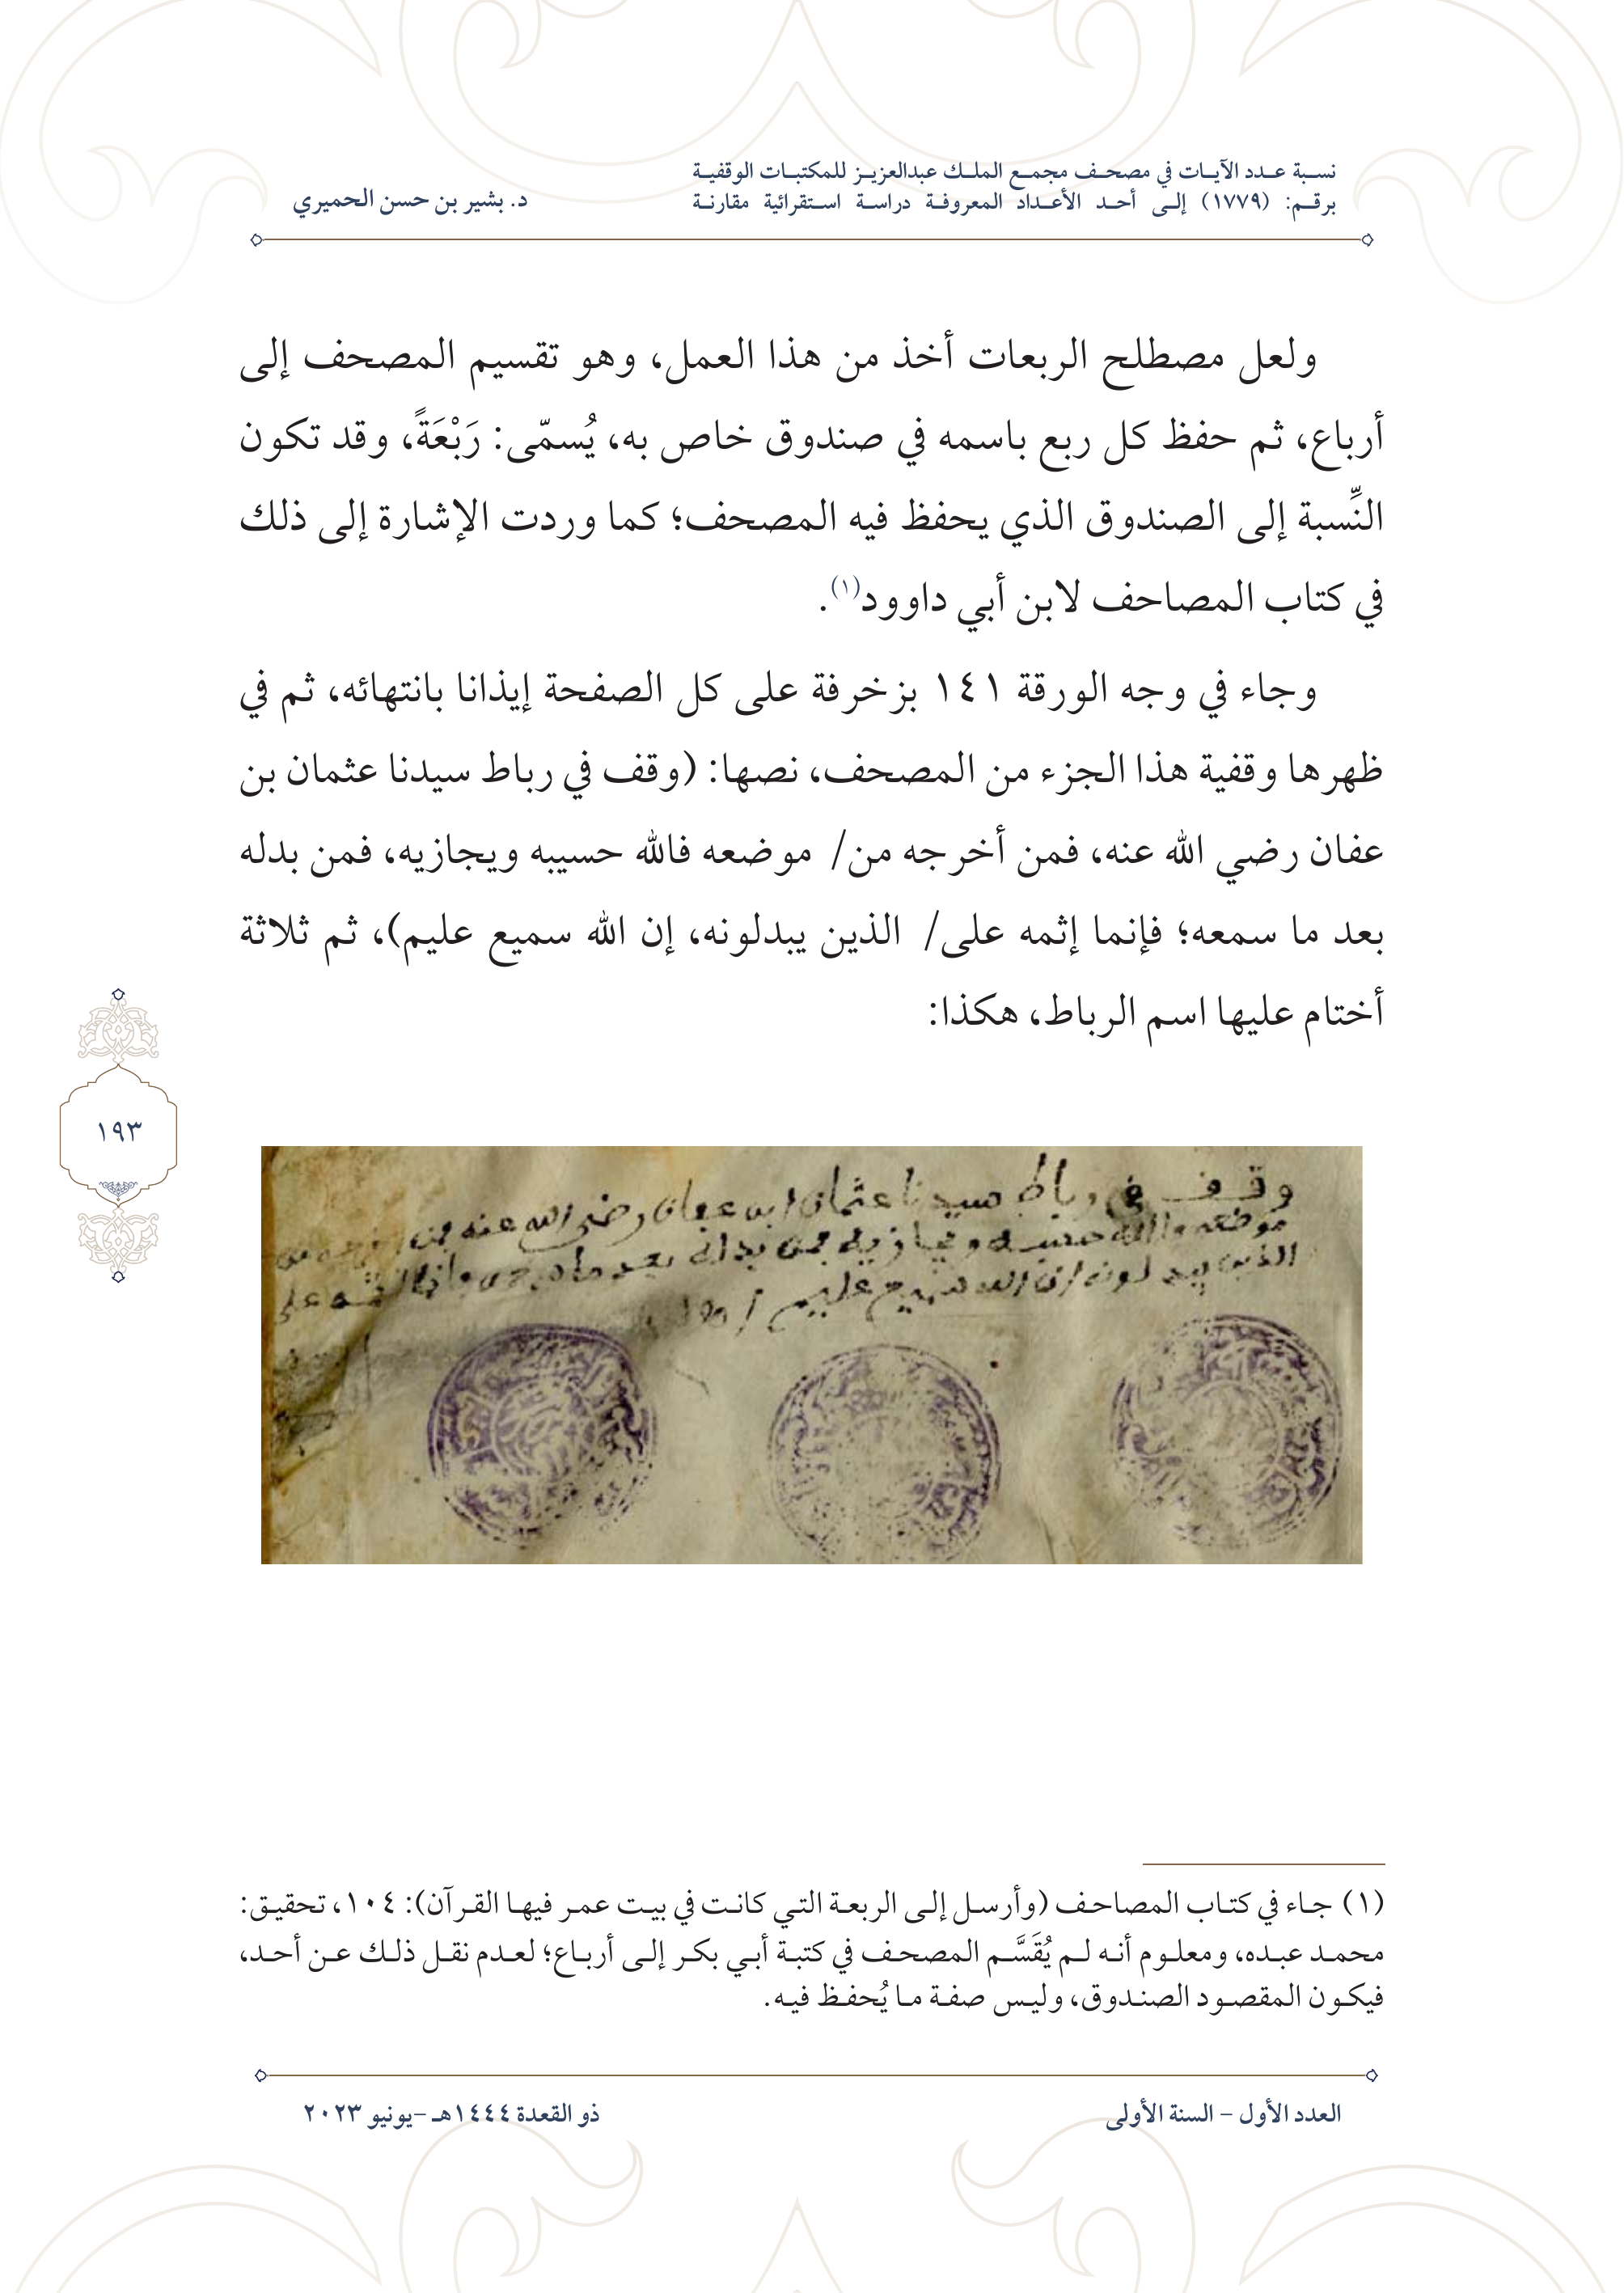 نسبة عدد الآيات في مصحف مجمع الملك عبدالعزيز للمكتبات الوقفية
برقم: (١٧٧٩) إلى أحد الأعداد المعروفة دراسة استقرائية مقارنة
د. بشير بن حسن الحميري
ولعل مصطلح الربعات أخذ من هذا العمل، وهو تقسيم المصحف إلى
أرباع، ثم حفظ كل ربع باسمه في صندوق خاص به، يُسمّى: رَبْعَةً، وقد تكون
النِّسبة إلى الصندوق الذي يحفظ فيه المصحف؛ كما وردت الإشارة إلى ذلك
في كتاب المصاحف لابن أبي داوود(١).
وجاء في وجه الورقة ١٤١ بزخرفة على كل الصفحة إيذانا بانتهائه، ثم في
ظهرها وقفية هذا الجزء من المصحف، نصها: (وقف في رباط سيدنا عثمان بن
عفان رضي الله عنه، فمن أخرجه من/ موضعه فالله حسيبه ويجازيه، فمن بدله
بعد ما سمعه؛ فإنما إثمه على/ الذين يبدلونه، إن الله سميع عليم)، ثم ثلاثة
أختام عليها اسم الرباط، هكذا:
١٩٣
وقف في رباط سيدنا عثمان ابن عفان رضي الله عنه فمن
موضعه والله حسيبه ويجازيه فمن بدله بعد ما
الذين يبدلونه ان الله سميع عليم
(١) جاء في كتاب المصاحف (وأرسل إلى الربعة التي كانت في بيت عمر فيها القرآن): ١٠٤، تحقيق:
محمد عبده، ومعلوم أنه لم يُقَسَّم المصحف في كتبة أبي بكر إلى أرباع؛ لعدم نقل ذلك عن أحد،
فيكون المقصود الصندوق، وليس صفة ما يُحفظ فيه.
العدد الأول – السنة الأولى
ذو القعدة ١٤٤٤هـ –يونيو ٢٠٢٣